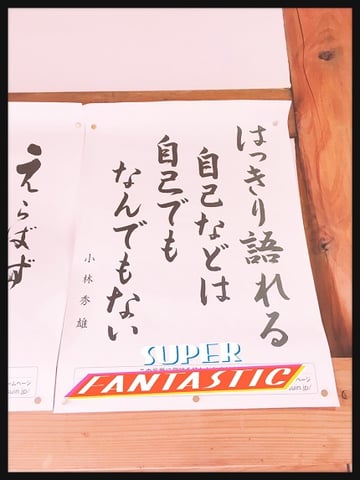 はっきり語れる
自己などは
自己でも
なんでもない
小林秀雄
えらばず
SUPER
FANTASTIC
ページ